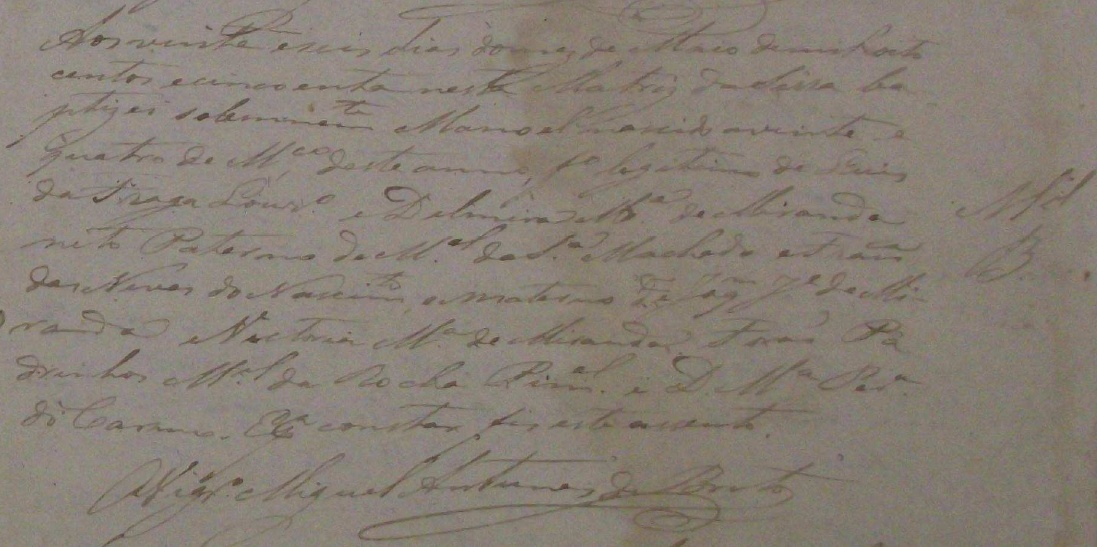 Aos vinte e seis dias do mez de Maio de mil oito
centos e cincoenta nesta Matriz da ba-
ptizei solemnemte Manoel nascido a vinte e
quatro de Mço deste anno, fo legitimo de Luis
da Fraga Lourço e Delmira Ma de Miranda
neto Paterno de Mel da Sa Machado e Franca
das Neves do Nascimto, e materno de Joaqm Je de Mi-
randa e Victoria Ma de Miranda, Forão Pa
drinhos Mel da Rocha Piml e D. Ma
do Carmo. E pa constar fis este assento.
O Vigro Miguel Antunes de Brito
Mel
B.